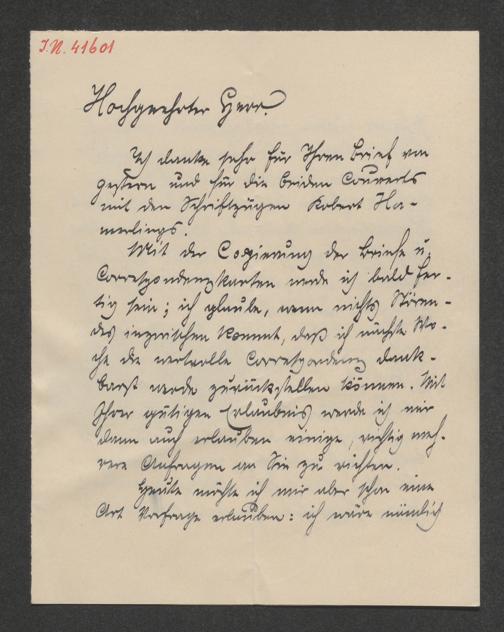 J.N. 41601
Hochgeehrter Herr.
Ich danke sehr für Ihren Brief von
gestern und für die beiden Couverts
mit den Schriftzügen Robert Ha-
merlings.
Mit der Copierung der Briefe u.
Correspondenzkarten werde ich bald fer-
tig sein; ich glaube, wenn nichts Stören-
des inzwischen kommt, daß ich nächste Wo-
che die wertvolle Correspondenz dank-
barst werde zurückstellen können. Mit
Ihrer gütigen Erlaubnis werde ich mir
dann auch erlauben einige, richtig meh-
rere Anfragen an Sie zu richten.
Heute möchte ich mir aber schon eine
Art Vorfrage erlauben: ich wäre nämlich